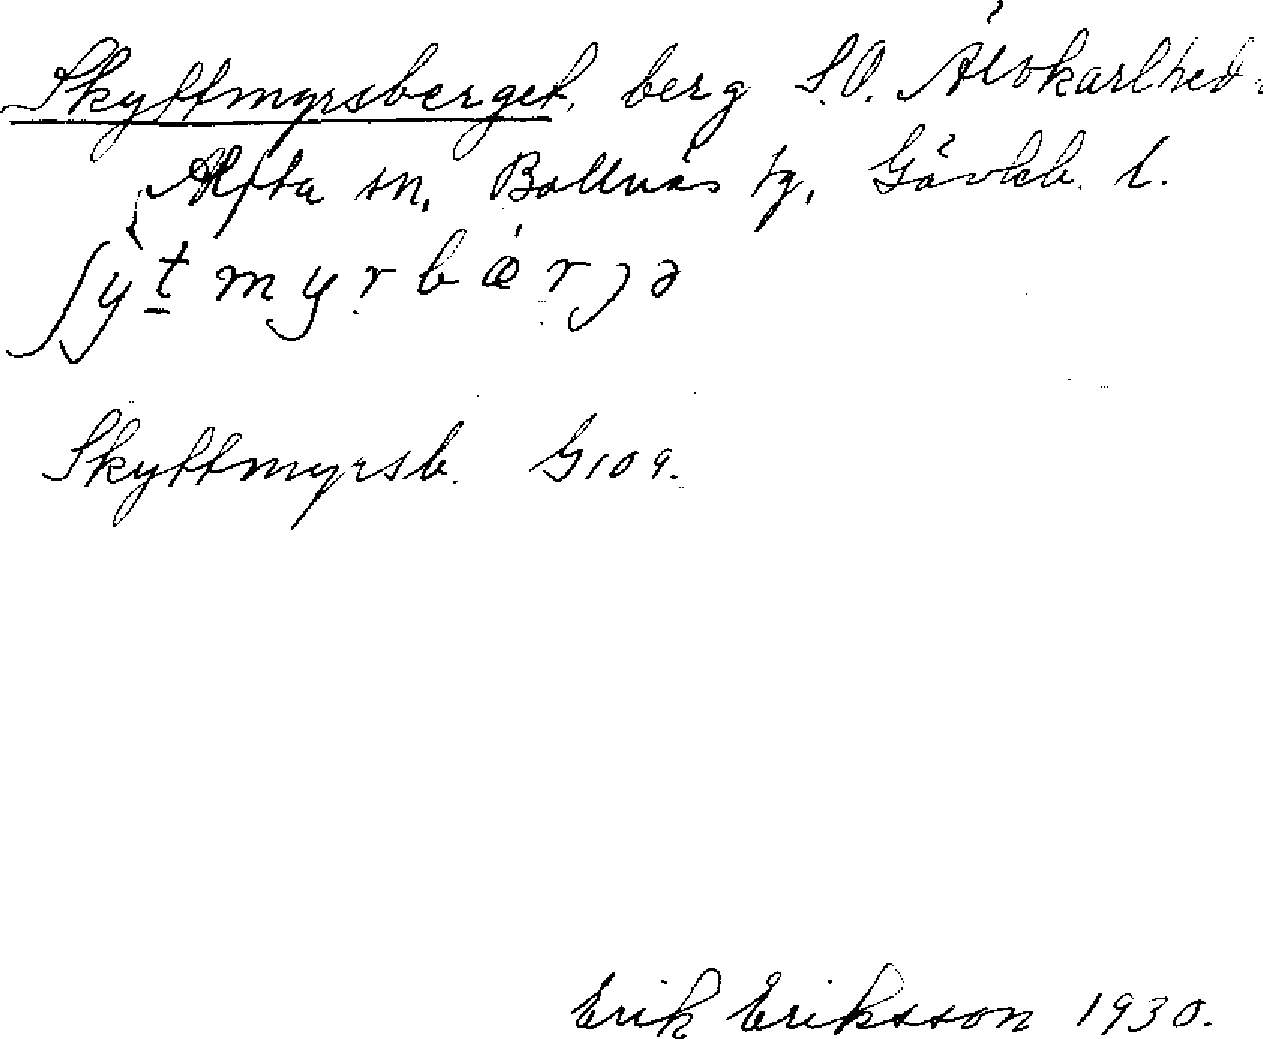 Skyttmyrsberget, berg S.O. Älvkarlhed.
Alfta sn, Bollnäs tg, Gävleb. l.
ʃỳt myrbǽrjə
Skyttmyrsb. G109.
Erik Eriksson 1930.